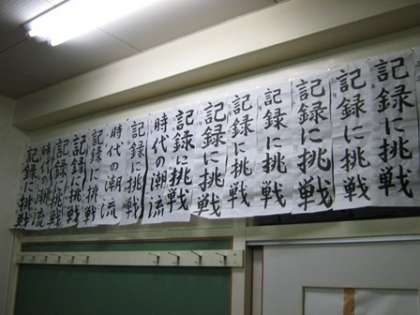 記録に挑戦
記録に挑戦
記録に挑戦
記録に挑戦
記録に挑戦
記録に挑戦
記録に挑戦
時代の潮流
記録に挑戦
時代の潮流
記録に挑戦
記録に挑戦
記録に挑戦
時代の潮流
記録に挑戦